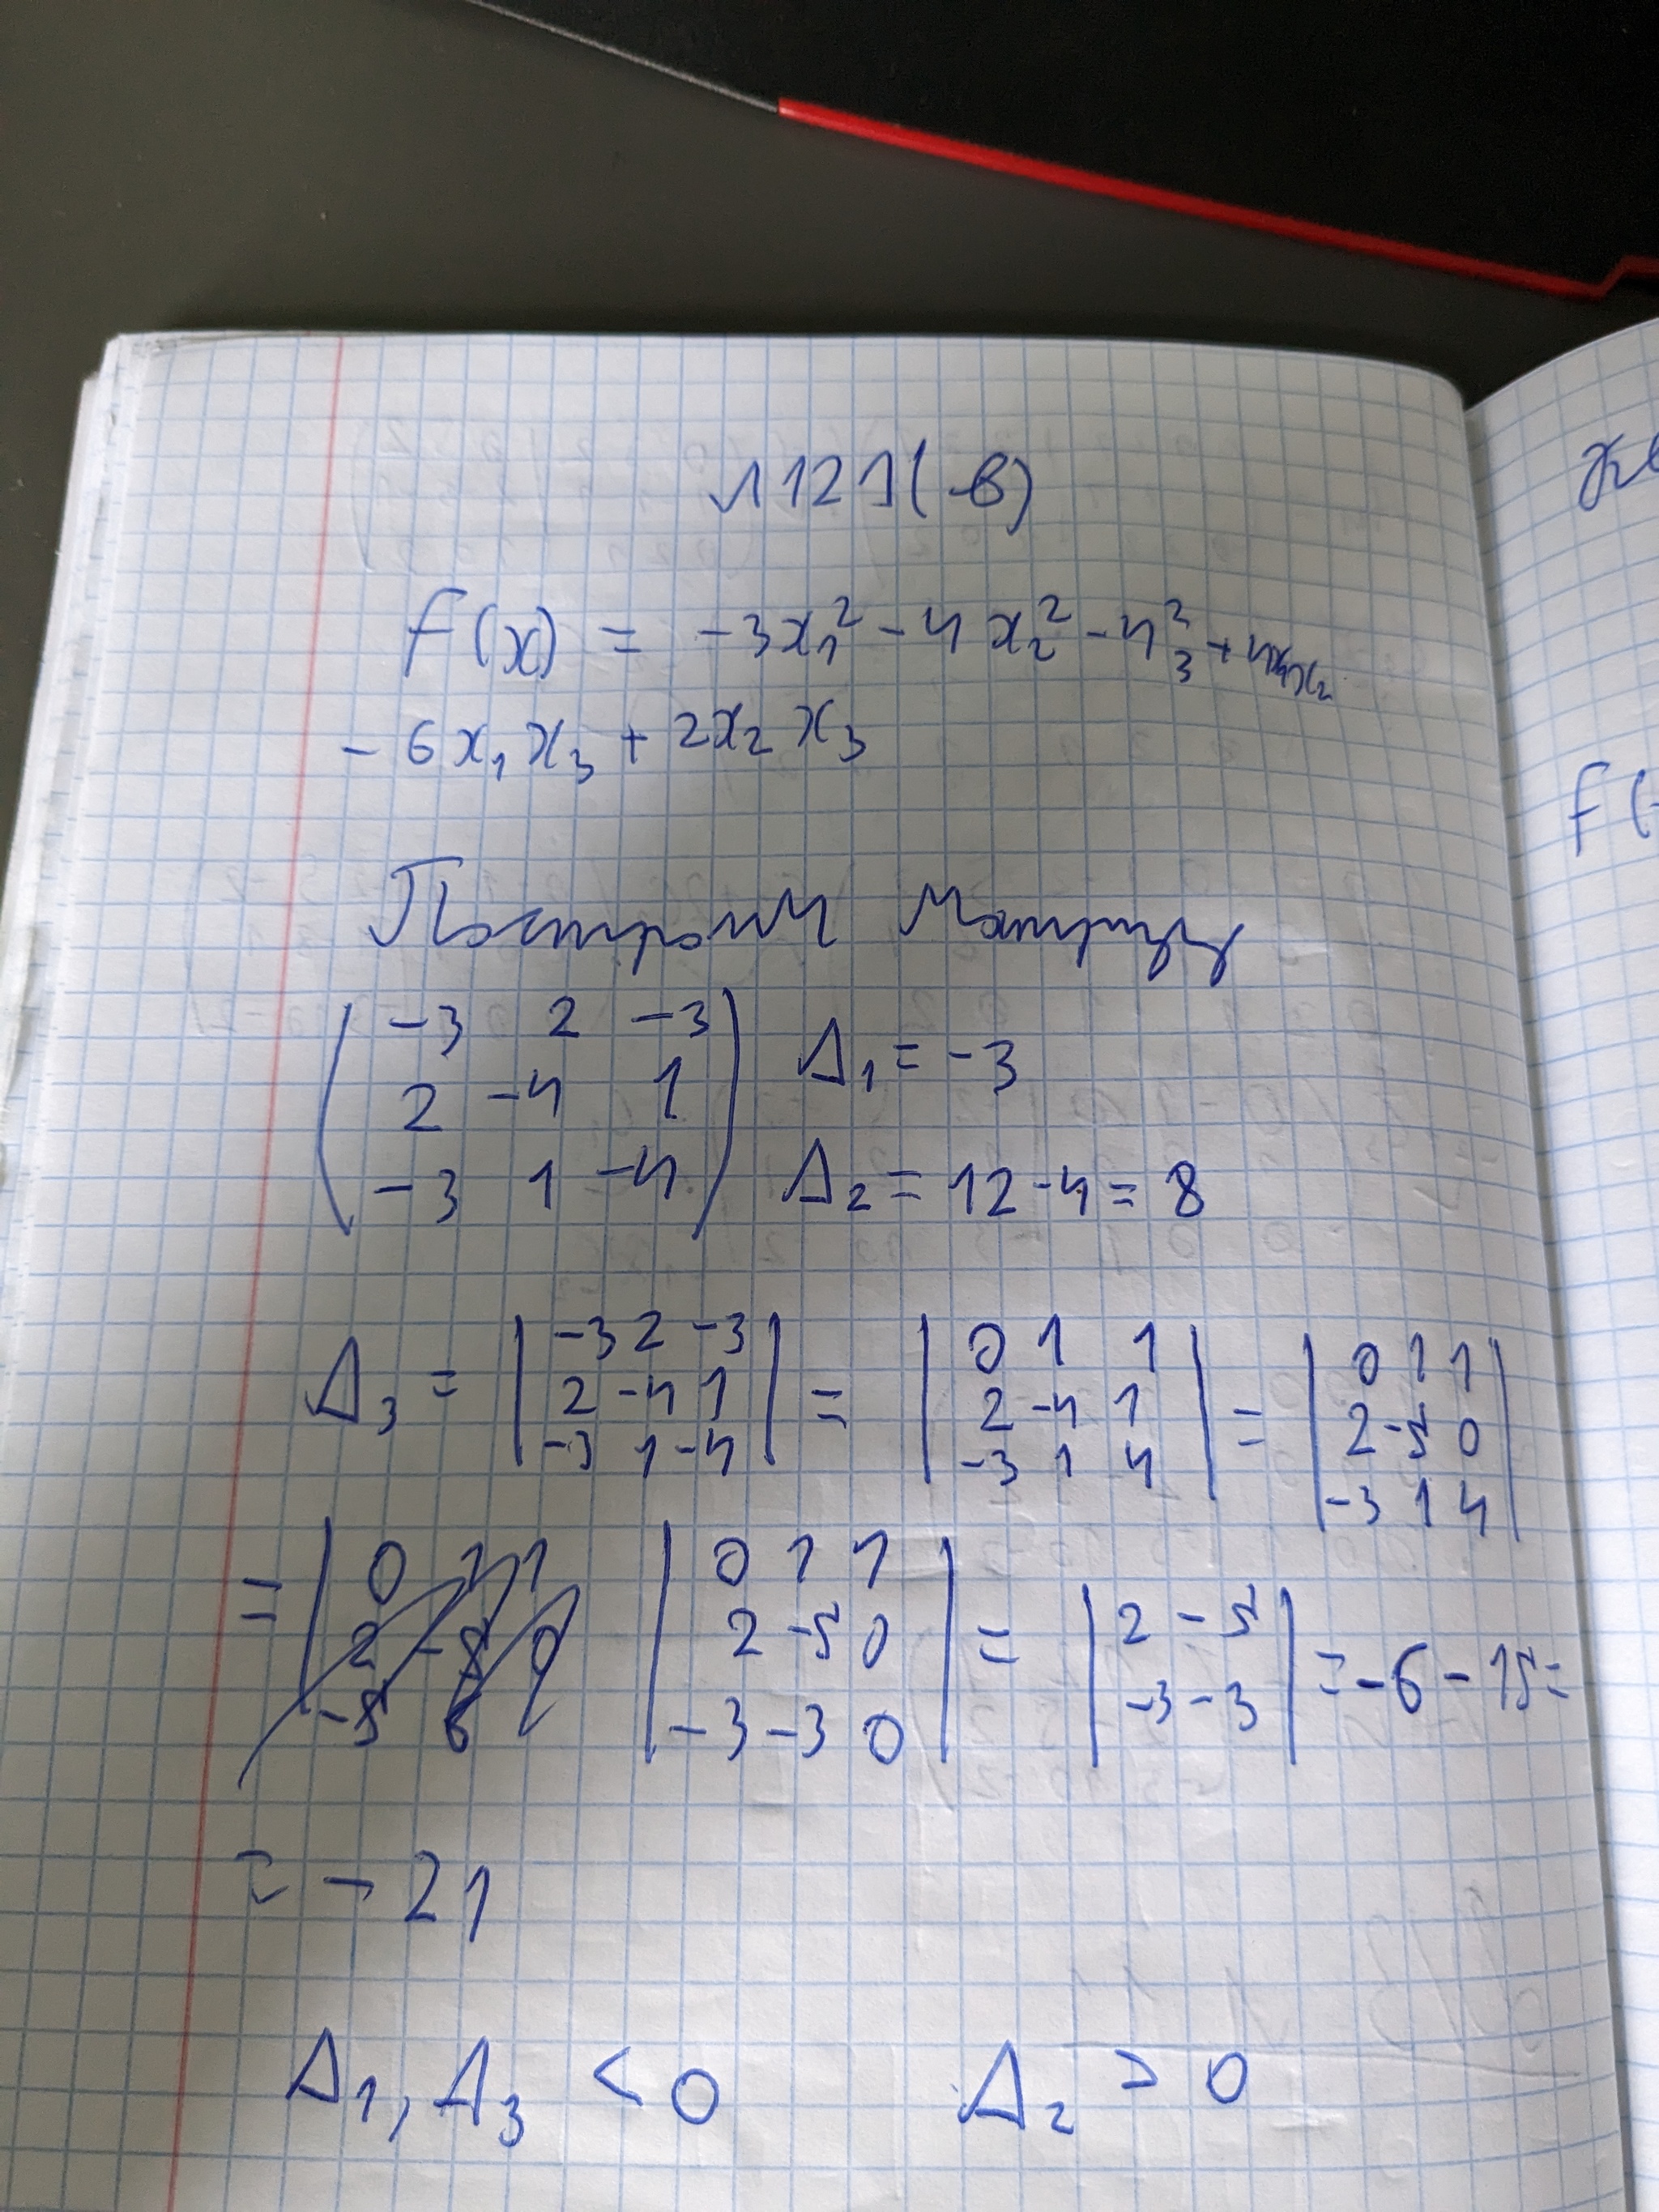 №121(в)
f(x) = -3x₁² - 4x₂² - 4₃² + 4x₁x₂
- 6x₁x₃ + 2x₂x₃
Построим матрицу
(-3 2 -3) Δ₁ = -3
(2 -4 1)
(-3 1 -4) Δ₂ = 12 - 4 = 8
Δ₃ = |-3 2 -3; 2 -4 1; -3 1 -4| = |0 1 1; 2 -4 1; -3 1 4| = |0 1 1; 2 -5 0; -3 1 4|
= |0 1 1; 2 -5 0; -3 -3 0| = |2 -5; -3 -3| = -6 - 15 =
= -21
Δ₁, Δ₃ < 0 Δ₂ > 0
f(